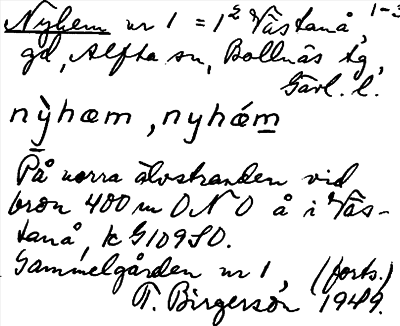 Nyhem nr 1 = 1² Västanå, 1-3
gd, Alfta sn, Bollnäs tg,
Gävl. l.
nỳhæm, nyhǽm
På norra älvstranden vid
bron 400 m O N O å i Väs-
tanå, k G109SO.
Gammelgården nr 1, (forts.)
T. Birgerson 1949.